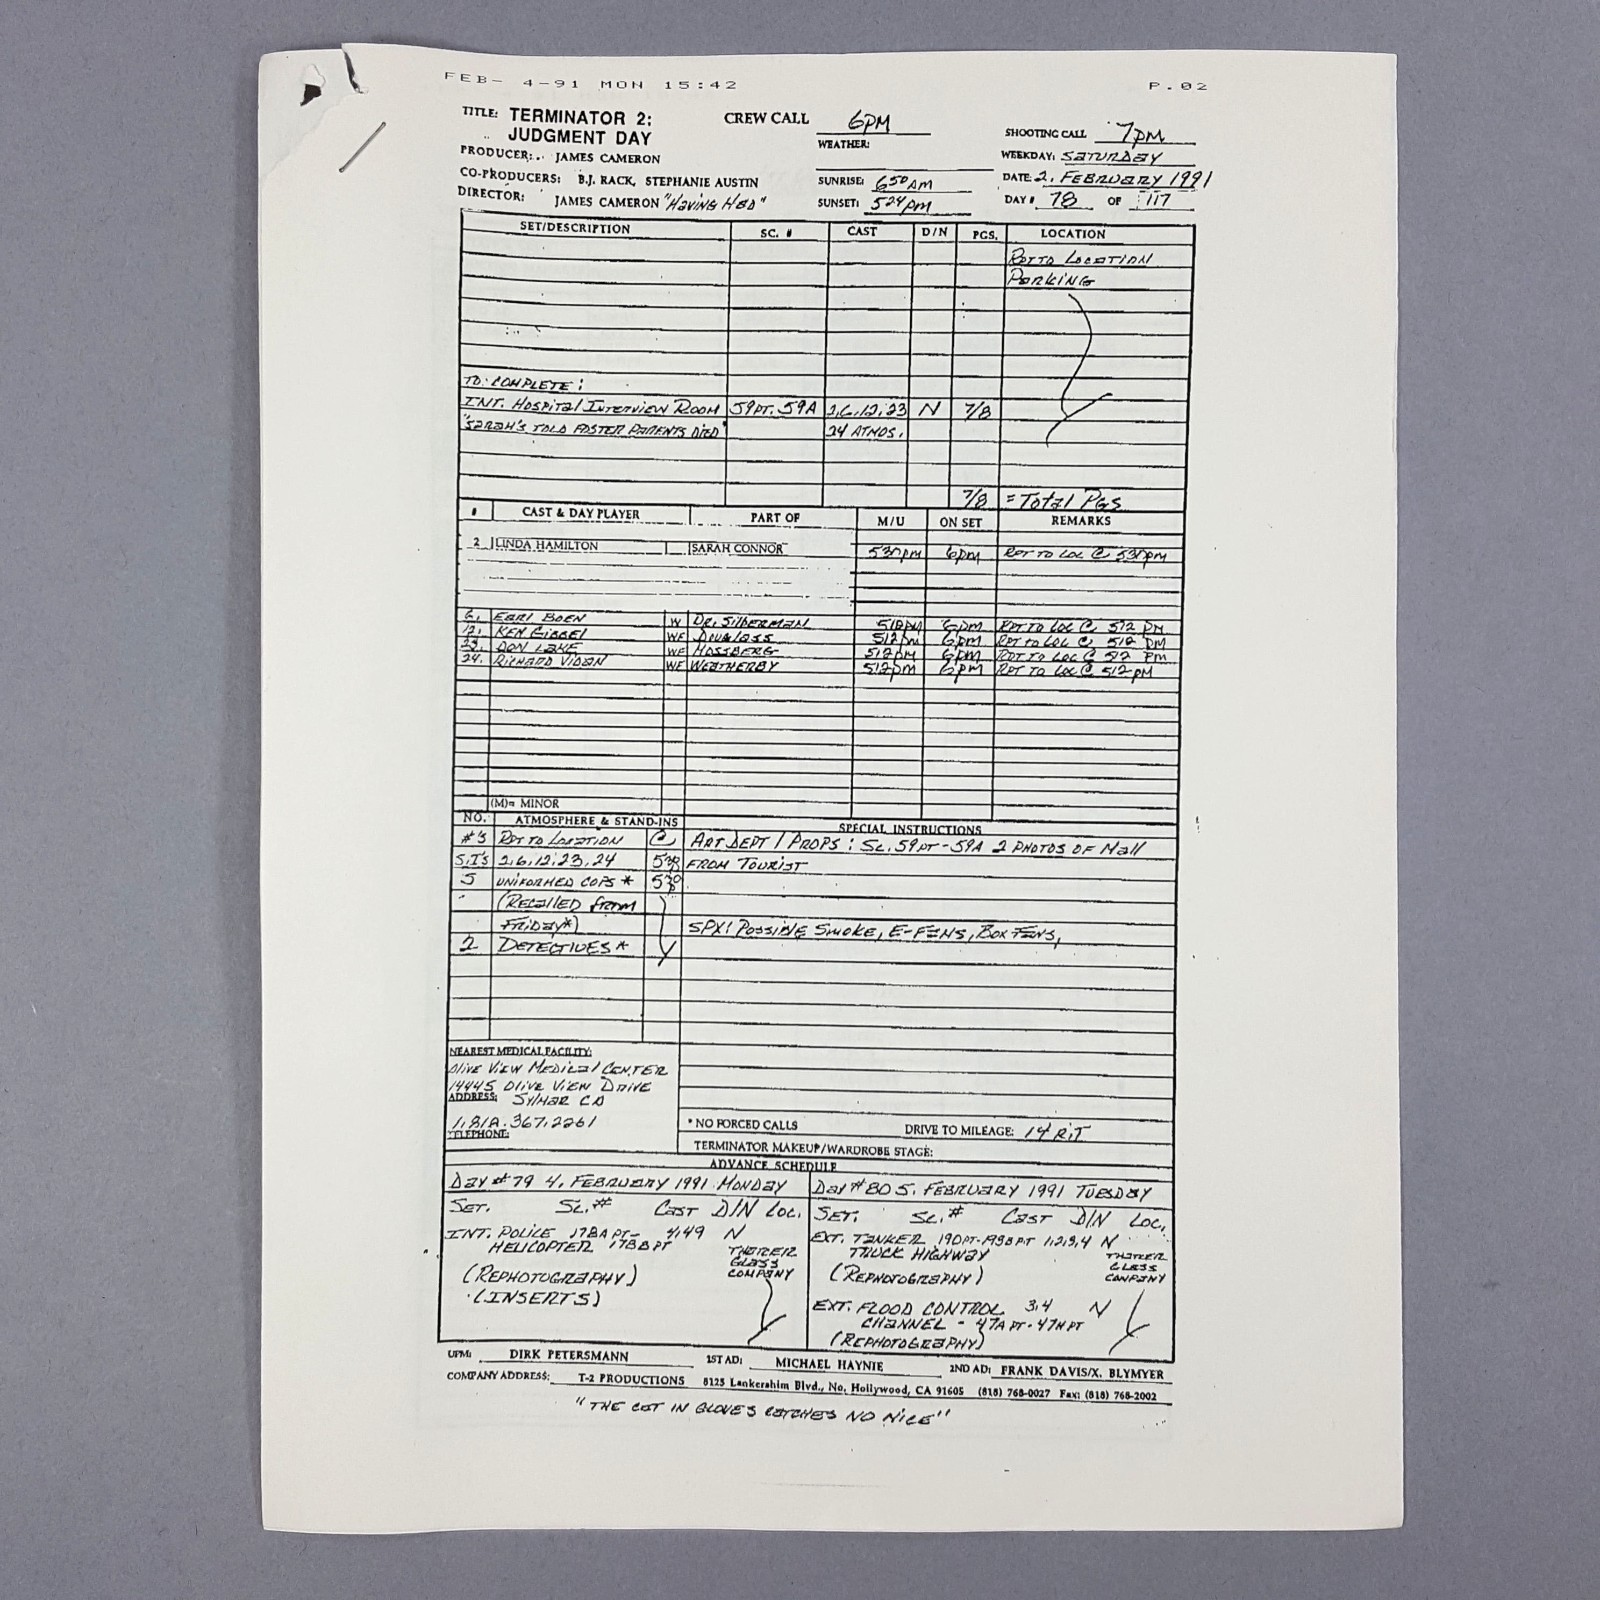 FEB- 4-91 MON 15:42 P.02
TITLE: TERMINATOR 2: JUDGMENT DAY
CREW CALL 6PM
SHOOTING CALL 7PM
PRODUCER: JAMES CAMERON
WEATHER:
WEEKDAY: SATURDAY
CO-PRODUCERS: B.J. RACK, STEPHANIE AUSTIN
SUNRISE: 650 AM
DATE: 2. FEBRUARY 1991
DIRECTOR: JAMES CAMERON
SUNSET: 524 PM
DAY # 78 OF 117
SET/DESCRIPTION SC. # CAST D/N PGS. LOCATION
RPT TO LOCATION
PARKING
TO: COMPLETE:
INT. HOSPITAL INTERVIEW ROOM 59PT. 59A 2,6,12,23 N 7/8
"SARAH'S TOLD FOSTER PARENTS DIED" 24 ATMOS.
7/8 = TOTAL PGS
# CAST & DAY PLAYER PART OF M/U ON SET REMARKS
2 LINDA HAMILTON SARAH CONNOR 530pm 6pm RPT TO LOC @ 530pm
6. EARL BOEN W DR. SILBERMAN 512PM 6PM RPT TO LOC @ 512 PM
12. KEN GIBBEL WF DOUGLASS 512PM 6PM RPT TO LOC @ 512 PM
23. DON LAKE WF MOSSBERG 512PM 6PM RPT TO LOC @ 512 PM
24. RICHARD VIDAN WF WEATHERBY 512PM 6PM RPT TO LOC @ 512 PM
(M)= MINOR
NO. ATMOSPHERE & STAND-INS SPECIAL INSTRUCTIONS
#'S RPT TO LOCATION @ ART DEPT / PROPS: SC. 59PT - 59A 2 PHOTOS OF MALL
S.I'S 2,6,12,23,24 530 FROM TOURIST
5 UNIFORMED COPS * 530
(RECALLED FROM
FRIDAY*) SPX: POSSIBLE SMOKE, E-FANS, BOX FANS,
2 DETECTIVES *
NEAREST MEDICAL FACILITY:
OLIVE VIEW MEDICAL CENTER
14445 OLIVE VIEW DRIVE
ADDRESS: SYLMAR CA
1.818.367.2261
TELEPHONE:
* NO FORCED CALLS DRIVE TO MILEAGE: 14 R.T
TERMINATOR MAKEUP/WARDROBE STAGE:
ADVANCE SCHEDULE
DAY #79 4. FEBRUARY 1991 MONDAY
SET. SC.# CAST D/N LOC.
INT. POLICE 178A PT- 4,49 N
HELICOPTER 178B PT
THATCHER GLASS COMPANY
(REPHOTOGRAPHY)
(INSERTS)
DAY #80 5. FEBRUARY 1991 TUESDAY
SET. SC.# CAST D/N LOC.
EXT. TANKER 190PT-193B PT 1,2,3,4 N
TRUCK HIGHWAY
THATCHER GLASS COMPANY
(REPHOTOGRAPHY)
EXT. FLOOD CONTROL 3,4 N
CHANNEL - 47A PT - 47H PT
(REPHOTOGRAPHY)
UPM: DIRK PETERSMANN 1ST AD: MICHAEL HAYNIE 2ND AD: FRANK DAVIS/X. BLYMYER
COMPANY ADDRESS: T-2 PRODUCTIONS 8125 Lankershim Blvd., No. Hollywood, CA 91605 (818) 768-0027 Fax: (818) 768-2002
"THE CAT IN GLOVES CATCHES NO MICE"